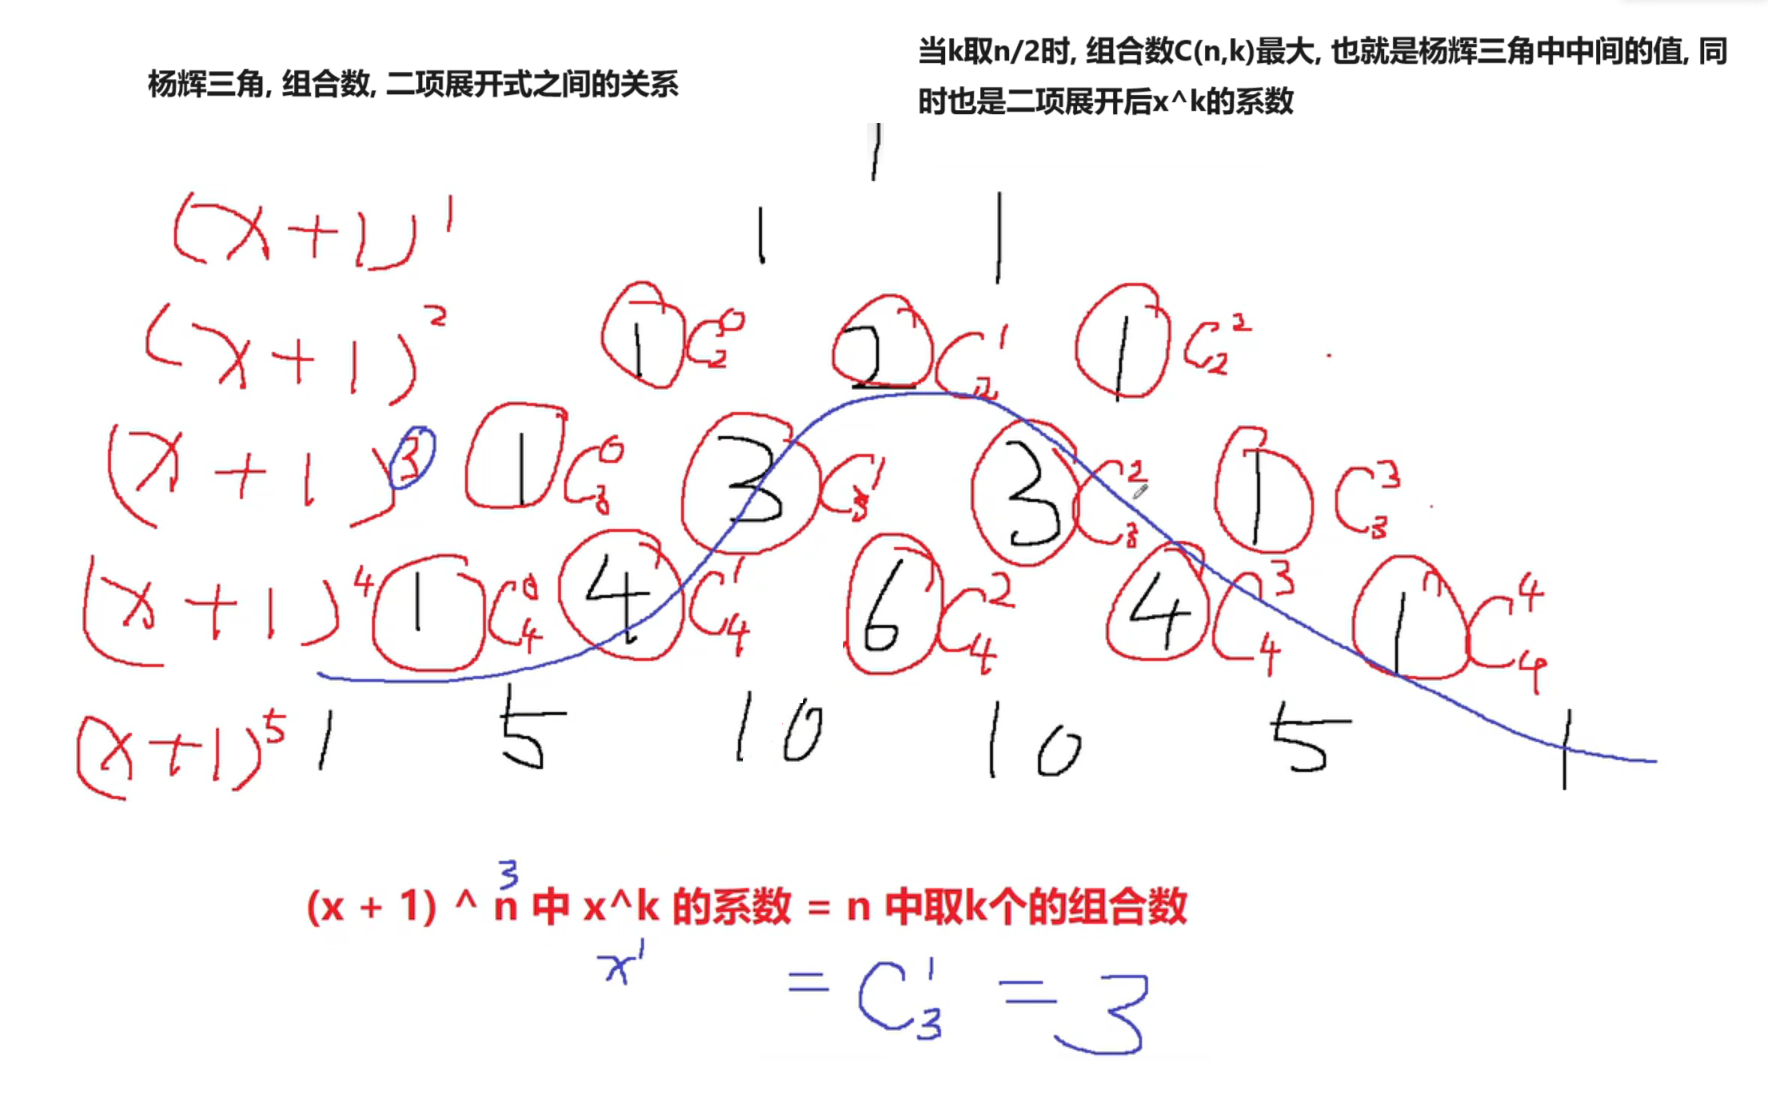 杨辉三角, 组合数, 二项展开式之间的关系
当k取n/2时, 组合数C(n,k)最大, 也就是杨辉三角中中间的值, 同
时也是二项展开后x^k的系数
1
(x+1)^1 1 1
(x+1)^2 1 C_2^0 2 C_2^1 1 C_2^2
(x+1)^3 1 C_3^0 3 C_3^1 3 C_3^2 1 C_3^3
(x+1)^4 1 C_4^0 4 C_4^1 6 C_4^2 4 C_4^3 1 C_4^4
(x+1)^5 1 5 10 10 5 1
3
(x + 1) ^ n 中 x^k 的系数 = n 中取k个的组合数
x^1 = C_3^1 = 3